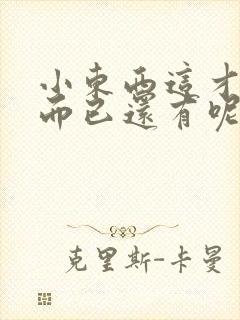 小東西這才
而已還有呢
克里斯-卡曼